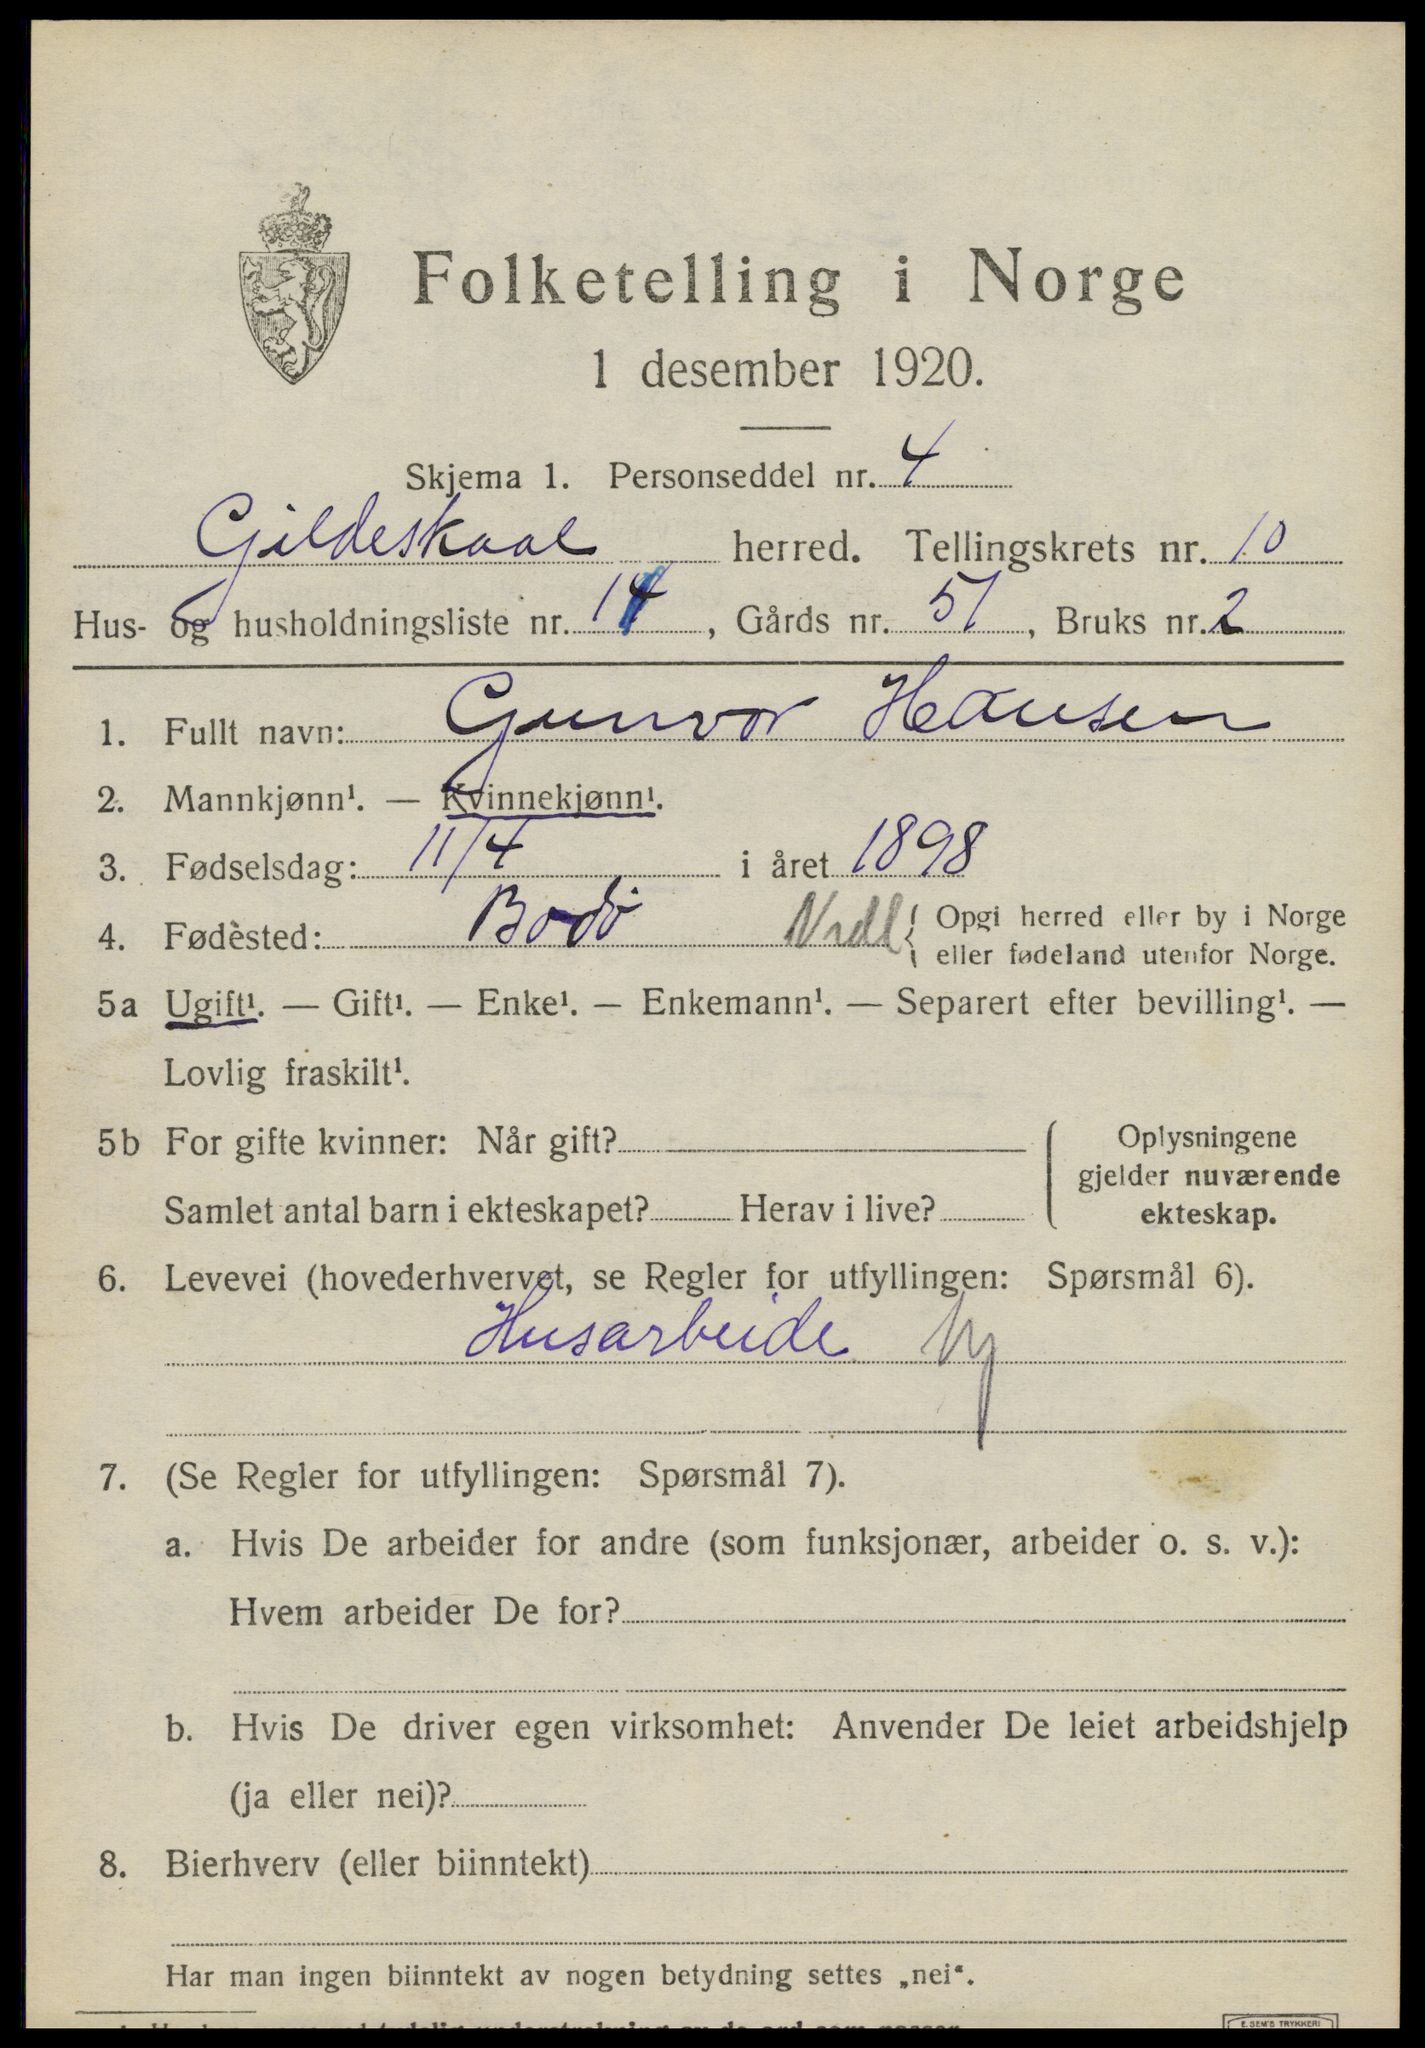 Folketelling i Norge
1 desember 1920.
Skjema 1. Personseddel nr. 4
Gildeskaal herred. Tellingskrets nr. 10
Hus- og husholdningsliste nr. 14, Gårds nr. 51, Bruks nr. 2
1. Fullt navn: Gunvor Hansen
2. Mannkjønn¹. — Kvinnekjønn¹.
3. Fødselsdag: 11/4 i året 1898
4. Fødested: Bodö Nrdl { Opgi herred eller by i Norge
eller fødeland utenfor Norge.
5a Ugift¹. — Gift¹. — Enke¹. — Enkemann¹. — Separert efter bevilling¹. —
Lovlig fraskilt¹.
5b For gifte kvinner: Når gift?
Samlet antal barn i ekteskapet? Herav i live?
Oplysningene
gjelder nuværende
ekteskap.
6. Levevei (hovederhvervet, se Regler for utfyllingen: Spørsmål 6).
Husarbeide
7. (Se Regler for utfyllingen: Spørsmål 7).
a. Hvis De arbeider for andre (som funksjonær, arbeider o. s. v.):
Hvem arbeider De for?
b. Hvis De driver egen virksomhet: Anvender De leiet arbeidshjelp
(ja eller nei)?
8. Bierhverv (eller biinntekt)
Har man ingen biinntekt av nogen betydning settes „nei“.
E. SEM'S TRYKKERI